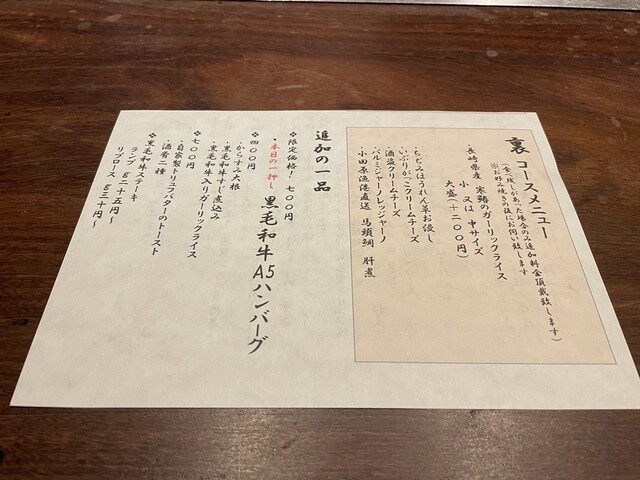 裏コースメニュー
(食べ残しがあった場合のみ追加料金頂戴致します)
※お好み焼きの後にお伺い致します
・長崎県産 寒鰤のガーリックライス
小 又は 中サイズ
大盛(+二〇〇円)
・ちぢみほうれん草お浸し
・いぶりがっこクリームチーズ
・酒盗クリームチーズ
・パルミジャーノレッジャーノ
・小田原漁港直送 馬頭鯛 肝煮
追加の一品
❖限定価格! 七〇〇円
・本日の一押し 黒毛和牛A5ハンバーグ
❖四〇〇円
・からすみ大根
・黒毛和牛すじ煮込み
・黒毛和牛入りガーリックライス
❖七〇〇円
・自家製トリュフバターのトースト
・酒肴二種
❖黒毛和牛ステーキ
ランプ g二十五円〜
リブロース g三十円〜